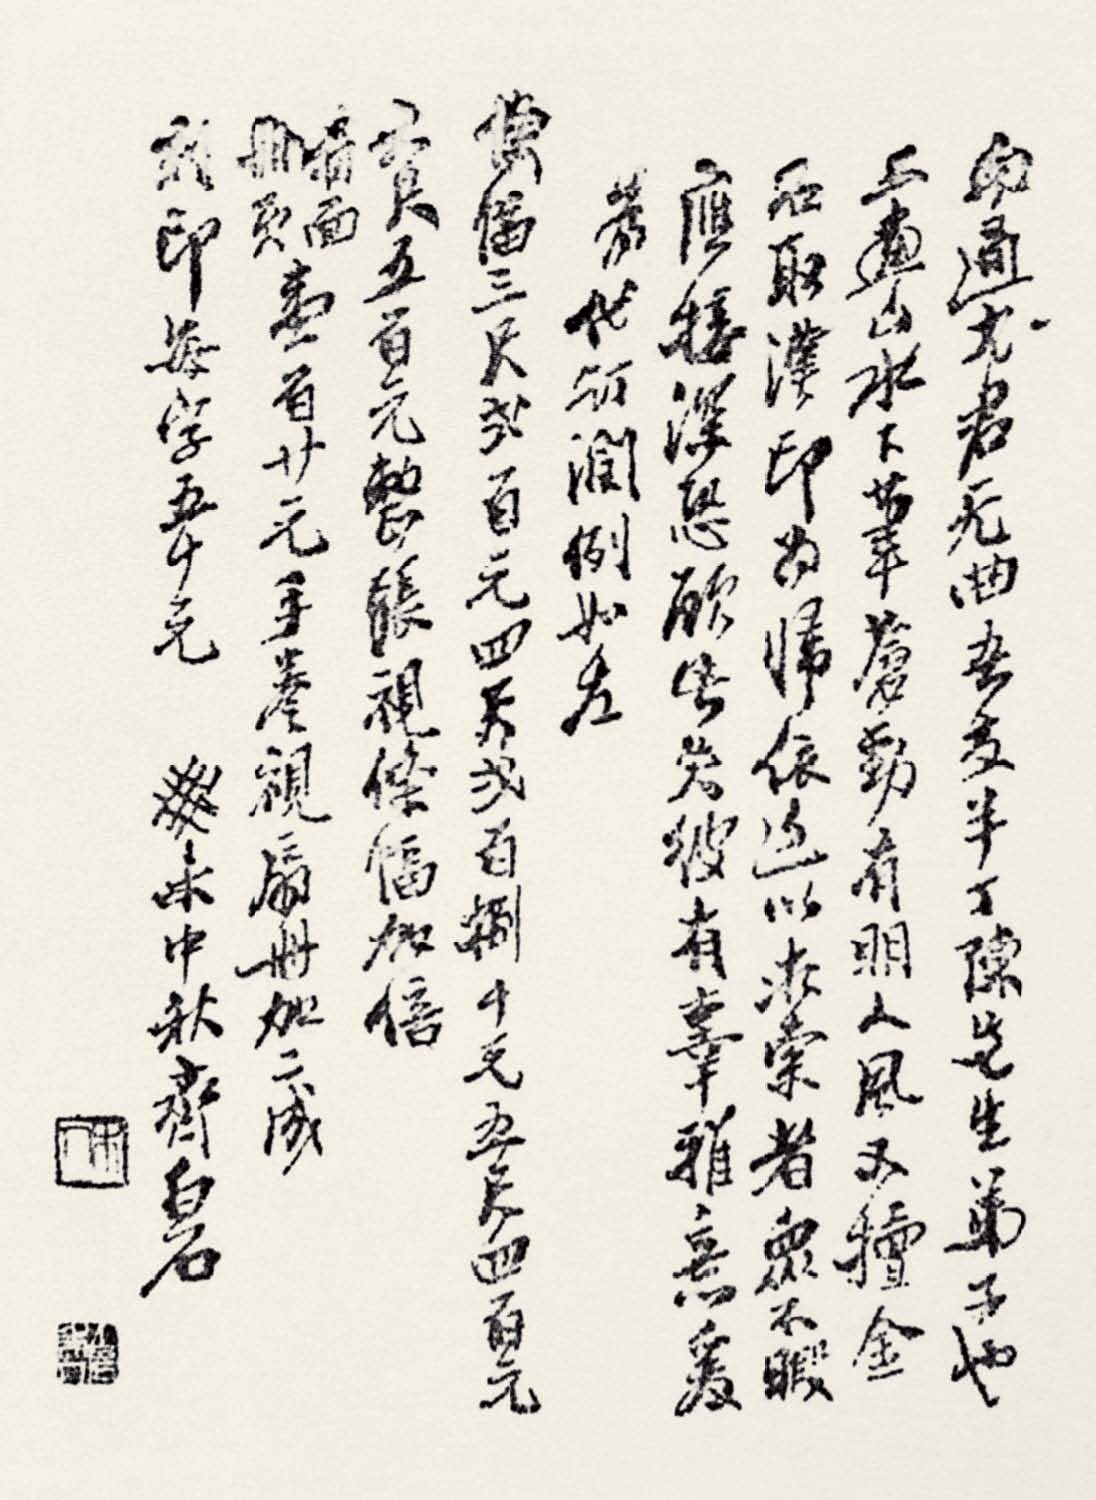 南通尤君无曲吾友半丁陳先生弟子也
工畫山水下筆蒼勁有明人風又擅金
石取漢印為歸依近以求索者衆不暇
應接深恐顧此失彼有辜雅意爰
為代訂潤例如左
條幅三尺弍百元四尺弍百捌十元五尺四百元
六尺五百元整張視條幅加倍
扇面冊頁壹百廿元手卷視扇冊加二成
刻印每字五十元
癸未中秋齊白石